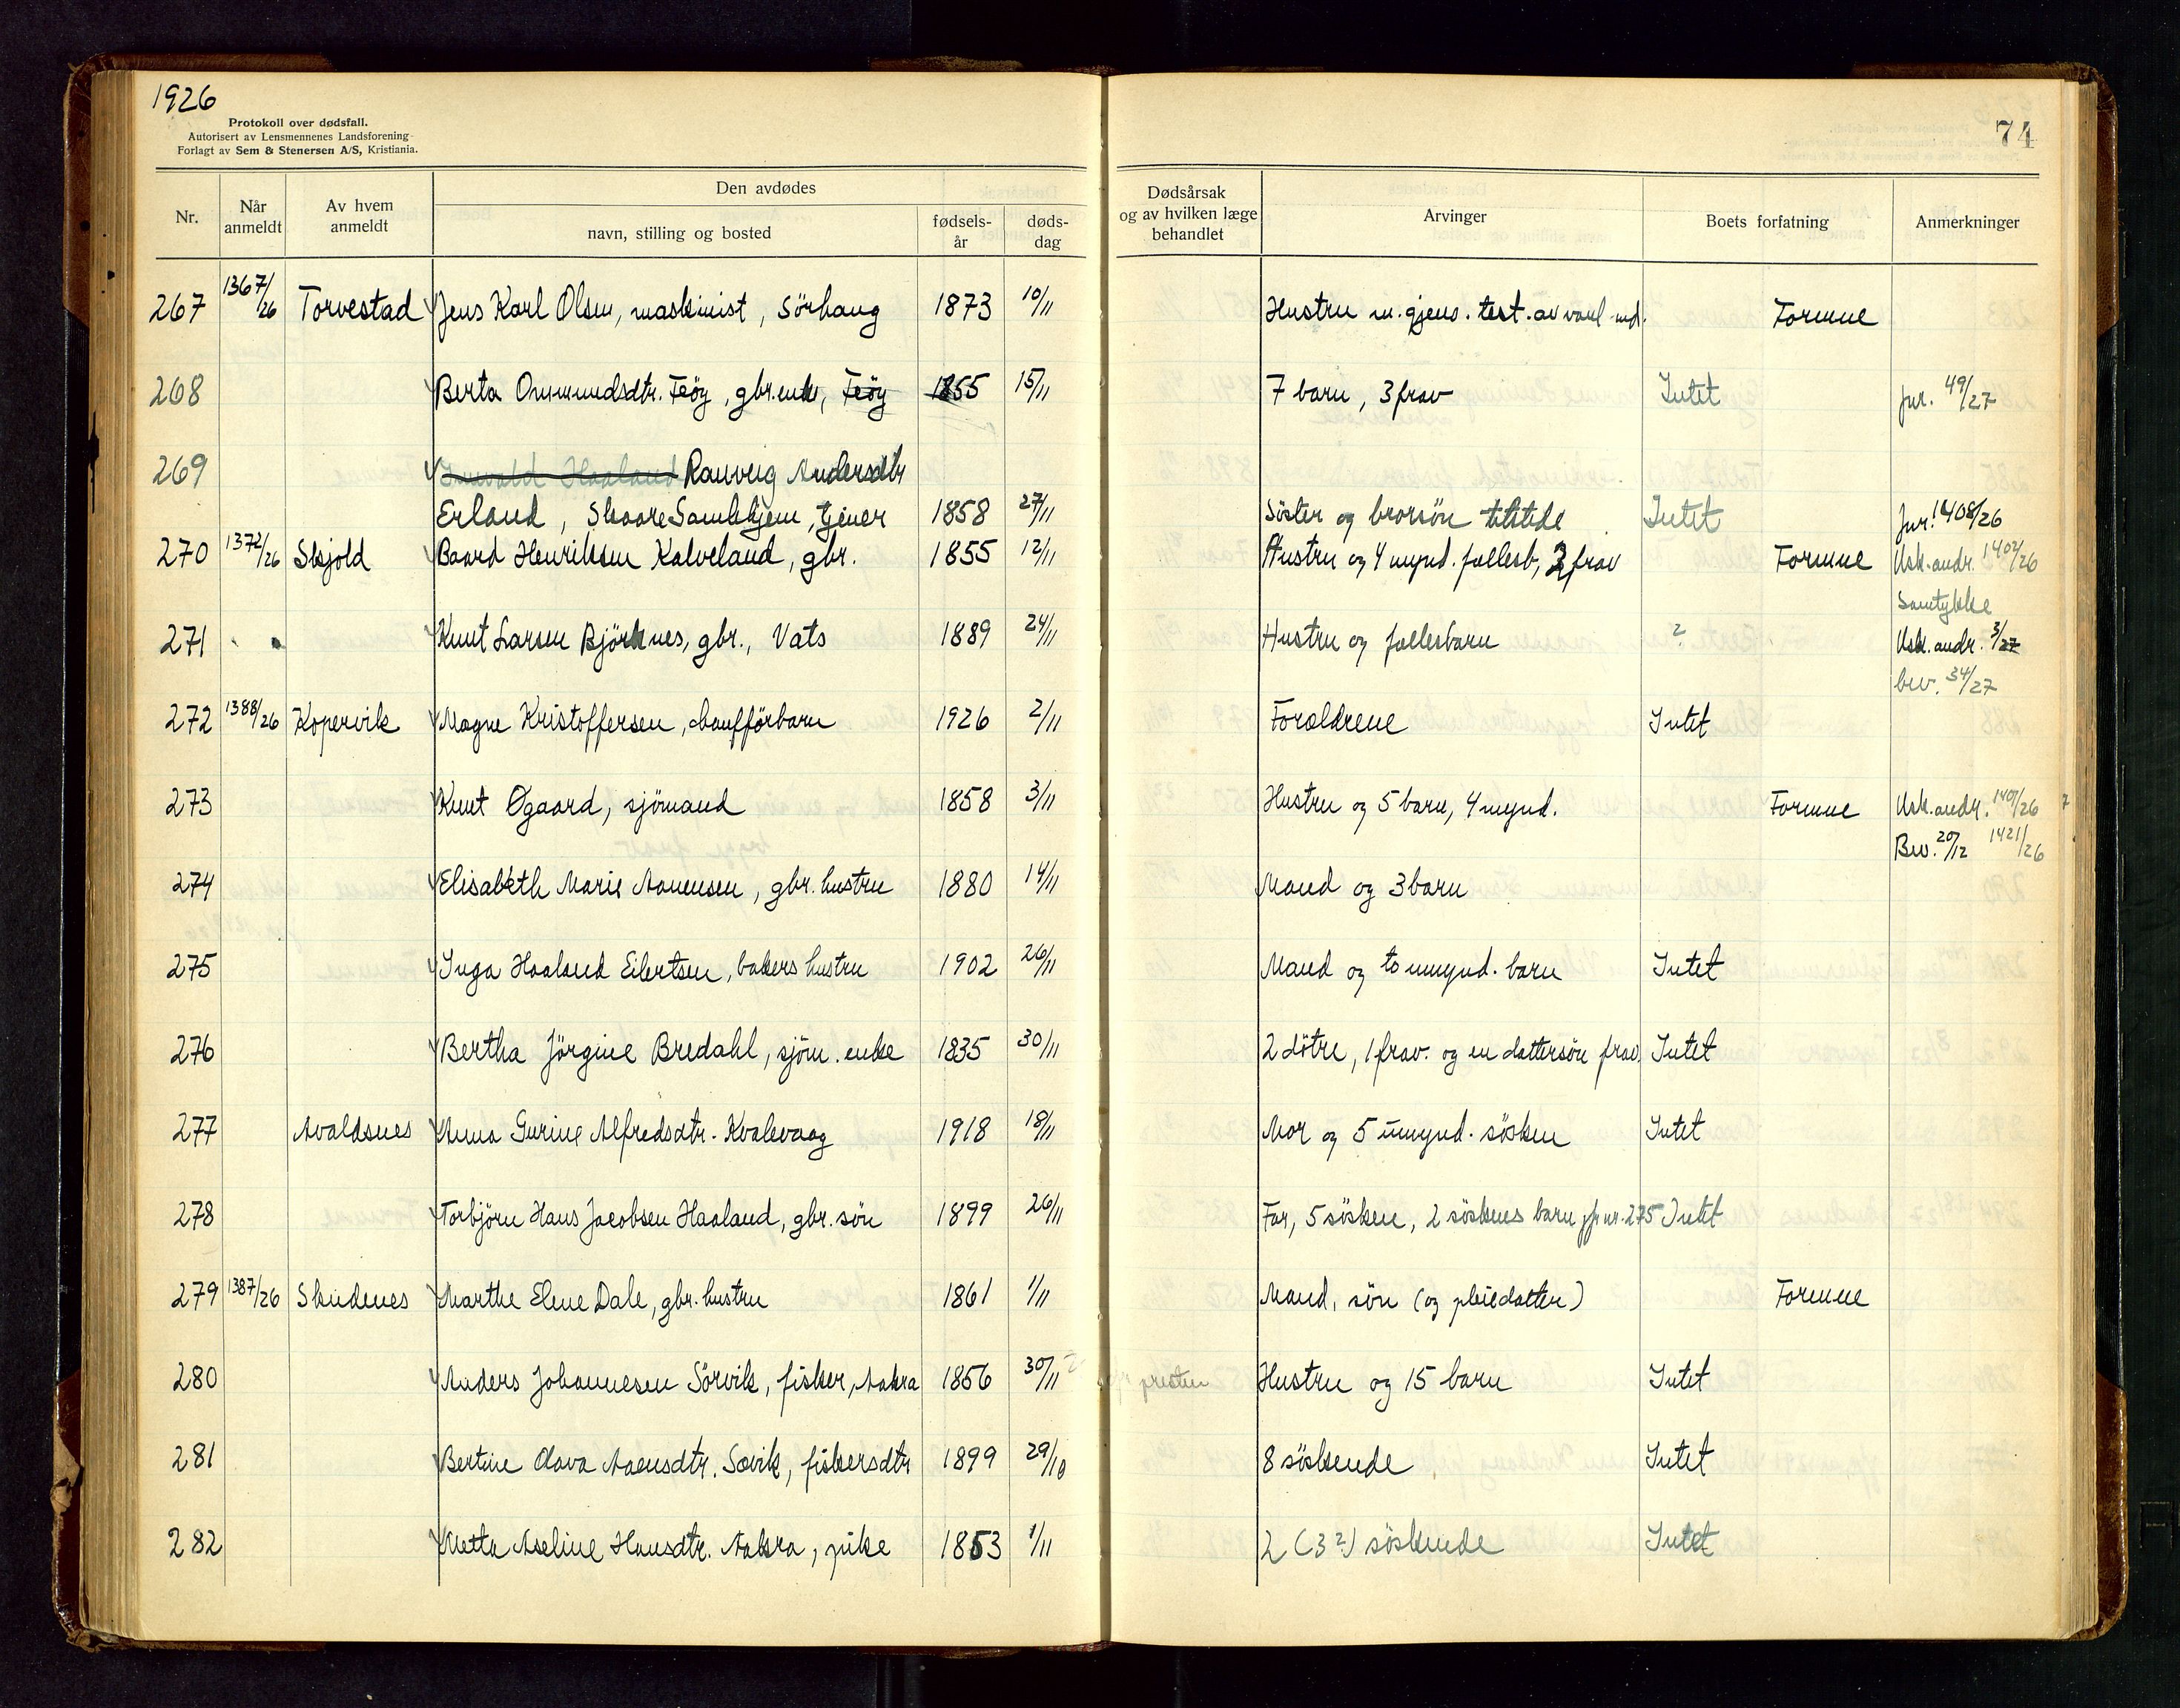 1926
Protokoll over dødsfall.
Autorisert av Lensmennenes Landsforening
Forlagt av Sem & Stenersen A/S, Kristiania.
74
Nr. Når anmeldt Av hvem anmeldt Den avdødes navn, stilling og bosted fødsels-år døds-dag Dødsårsak og av hvilken læge behandlet Arvinger Boets forfatning Anmerkninger
267 1367/26 Torvestad Jens Karl Olsen, maskinist, Sörhaug 1873 10/11 Hustru m. gjens. test. av Formue
268 Berta Ommundsdtr. Feöy, gbr.enke, Feöy 1855 15/11 7 barn, 3 frav Intet Jnr. 49/27
269 Haaland Ranveig Andersdtr
Erland, Skaare Samlehjem, tjener 1858 27/11 Söster og brorsön tilstede Intet Jnr. 1408/26
270 1372/26 Skjold Baard Henriksen Kalveland, gbr. 1855 12/11 Hustru og 4 mynd. fellesb, 2 frav Formue Usk. andr. 1402/26
Samtykke
271 Knut Larsen Björknes, gbr., Vats 1889 24/11 Hustru og fellesbarn ? Usk. andr. 3/27
bev. 34/27
272 1388/26 Kopervik Magne Kristoffersen, chauffförbarn 1926 2/11 Foreldrene Intet
273 Knut Øgaard, sjömand 1858 3/11 Hustru og 5 barn, 4 mynd. Formue Usk. andr. 1401/26
Bev. 20/12 1421/26
274 Elisabeth Marie Aanensen, gbr. hustru 1880 14/11 Mand og 3 barn
275 Inga Haaland Eilertsen, bakers hustru 1902 26/11 Mand og to umynd. barn Intet
276 Bertha Jörgine Bredahl, sjöm. enke 1835 30/11 2 dötre, 1 frav. og en dattersön frav. Intet
277 Avaldsnes Anna Gurine Alfredsdtr. Kvalevaag 1918 18/11 Mor og 5 umynd. sösken Intet
278 Torbjörn Hans Jacobsen Haaland, gbr. sön 1899 26/11 Far, 5 söskene, 2 söskens barn jfr nr. 275 Intet
279 1387/26 Skudenes Marthe Elene Dale, gbr. hustru 1861 1/11 Mand, sön (og pleiedatter) Formue
280 Anders Johannesen Sörvik, fisker, Aakra 1856 30/11 presten Hustru og 15 barn Intet
281 Bertine Olava Aaensdtr. Sævik, fiskersdtr 1899 29/10 8 söskende Intet
282 Metta Aseline Hansdtr. Aakra, pike 1853 1/11 2 (3?) söskende Intet